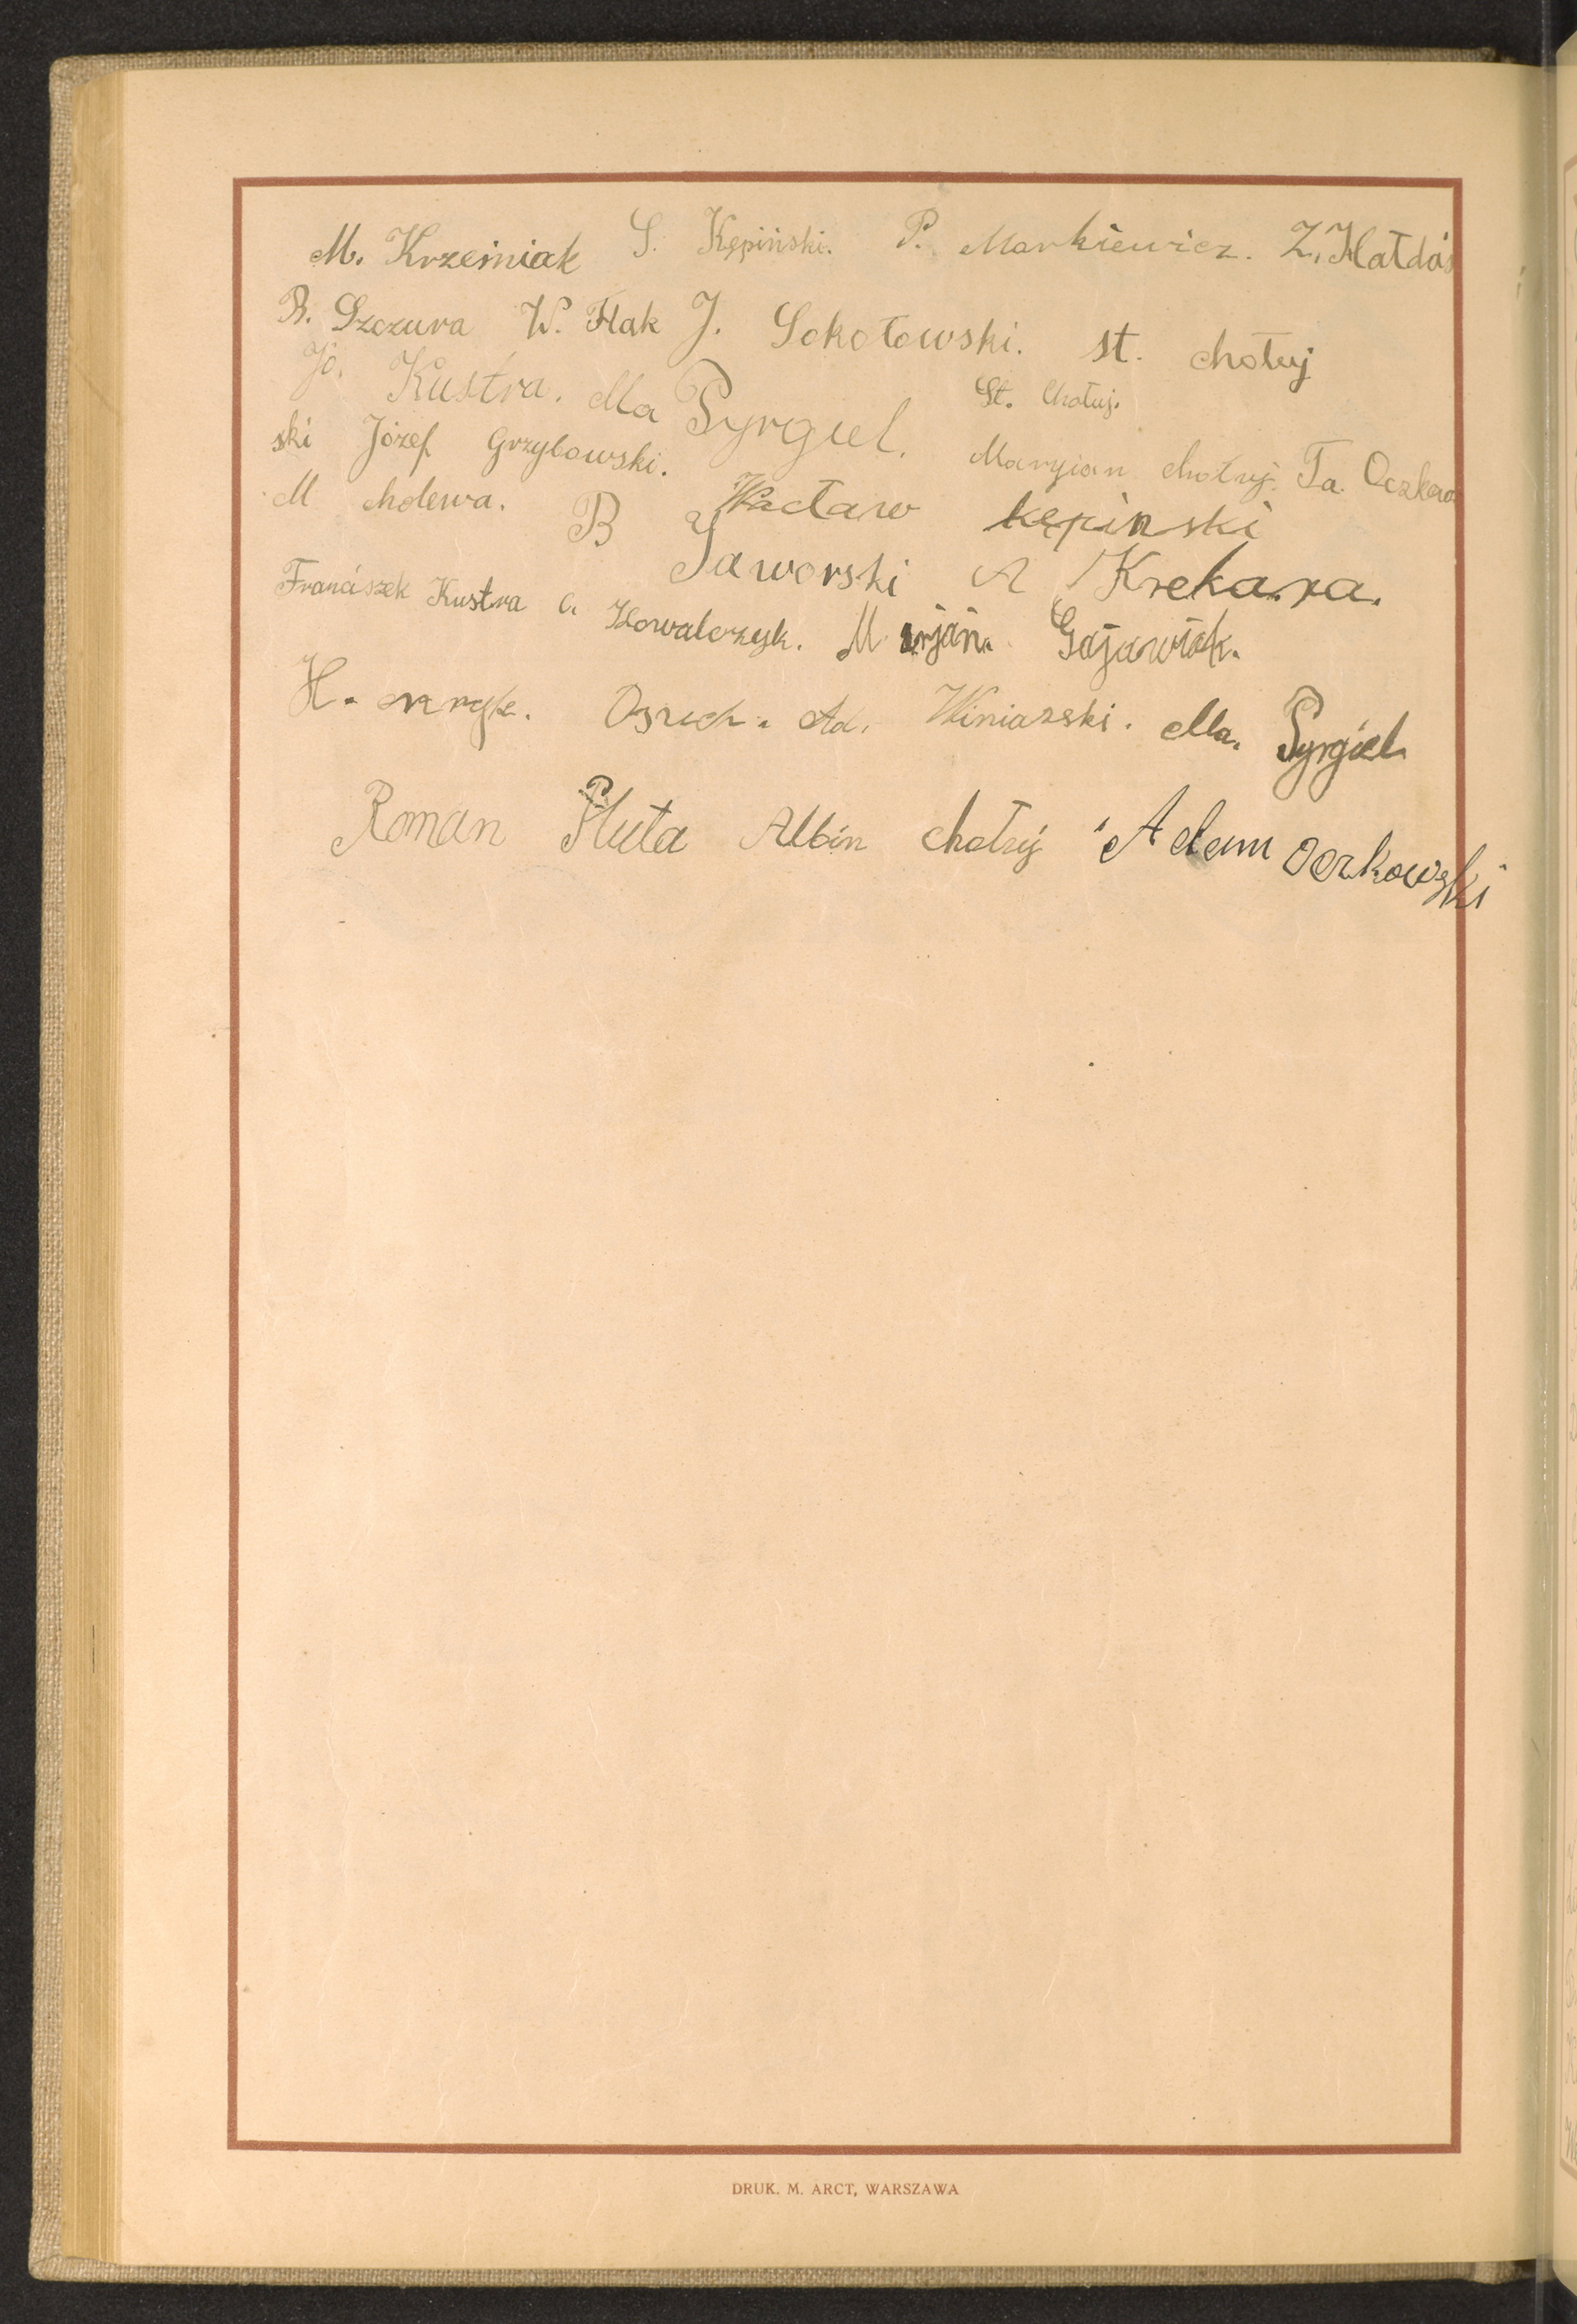 M. Krześniak S. Kępiński. P. Markiewicz. Z. Hałdaś
B. Szczura W. Flak J. Sokołowski. st. chołuj
Jó. Kustra. Ma Pyrgiel. St. Chołuj.
ski Józef Grzybowski. Maryian chołuj. Ta. Oczkow
M cholewa. Wacław kępinski
B Jaworski A Krekara.
Franciszek Kustra C. Kowalczyk. Marjan. Gajawiak.
H. Ad. Winiarski. Ma. Pyrgiel
Roman Pluta Albin chołuj Adam Oczkowski
DRUK. M. ARCT, WARSZAWA